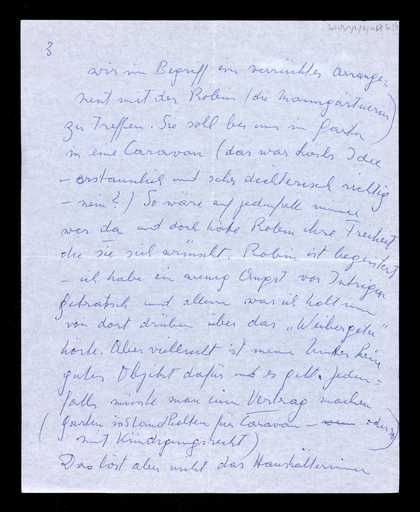 3
wir im Begriff ein verrücktes Arrange-
ment mit der Robin (die Baumgärtnerin)
zu treffen. Sie soll bei uns im Garten
in eine Caravan (das war Idee
– erstaunlich und sehr dichterisch richtig
– nein?) So wäre auf jedenfalls immer
wer da und doch hätte Robin ihre Freiheit
die sie sich wünscht. Robin ist begeistert
– ich habe ein wenig Angst vor Intrigen
Getratsch und allem was ich halt nun
von dort drüben über das „Weibergetu"
hörte. Aber vielleicht ist meine kein
gutes Objekt dafür und es geht. Jeden=
falls müsste man einen Vertrag machen
(Garten instand halten für Caravan – oder so
mit Kündigungsrecht)
Das löst aber nicht das Haushälterinnen